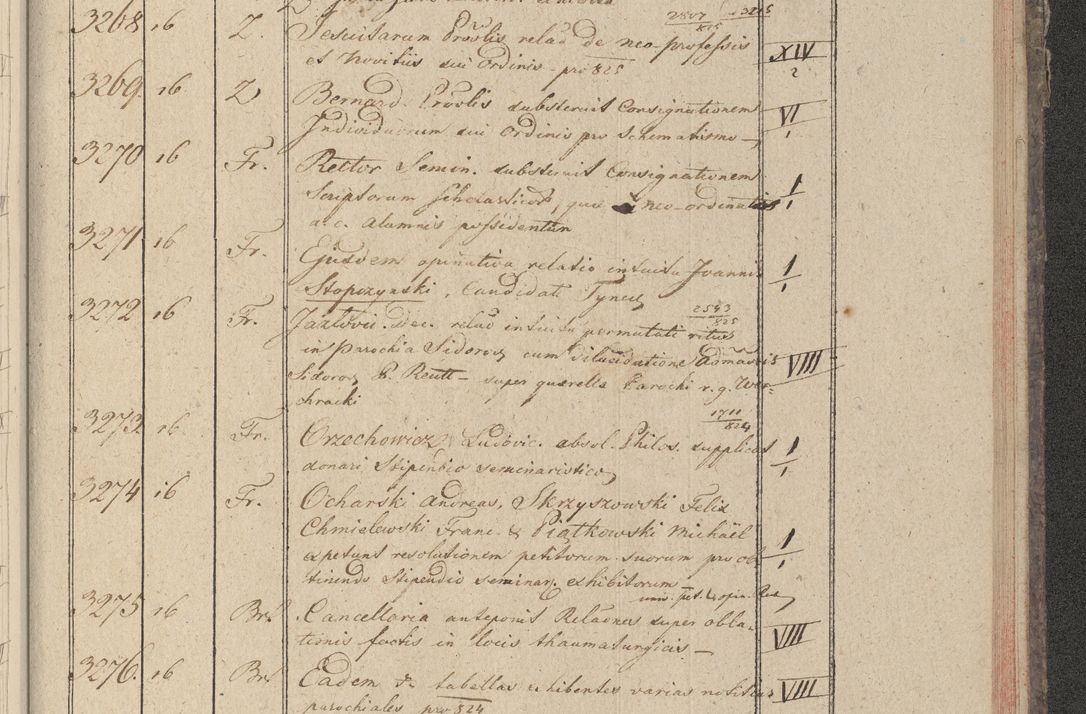 2807/815 3215
3268 16 Z. Jesuitarum Provlis relaō de neo-professis XIV/2
et Novitiis sui Ordinis pro 825
3269. 16 Z Bernard. Provlis substernit Consignationem VI/1
Individuorum sui Ordinis pro schematismo —
3270 16 Fr. Rector Semin. substernit Consignationem 1/1
Scriptorum scholasticor, quae neo-ordinatus
a. c. alumnis possidentur
3271 16 Fr. Ejusdem opinativa relatio intuitu Joannis 1/1
Stopczynski, Candidati Tynec
2543/825
3272 16 Fr. Jazlovic. Dec. relaō intuitu permutati ritus
in parochia Sidorov cum dilucidatione VIII
Sidorov P. Reutt — super querella Parochi r. g. Wor-
chracki
1711/824
3273 16 Fr. Orzechowicz Ludovic. absol. Philos. supplicat 1/1
donari Stipendio seminaristico
3274 16 Fr. Ocharski Andreas, Skrzyszowski Felix
Chmielewski Franc. & Piątkowski Michaël 1/1
expetunt resolutionem petitorum suorum pro ob-
tinendo Stipendio seminar. exhibitorum
pet. & opin.
3275 16 Br. Cancellaria anteponit Relaōnes super obla- VIII
tionis factis in locis thaumaturgicis —
3276. 16 Br. Eadem tabellas exhibentes varias notitias VIII
parochiales pro 824